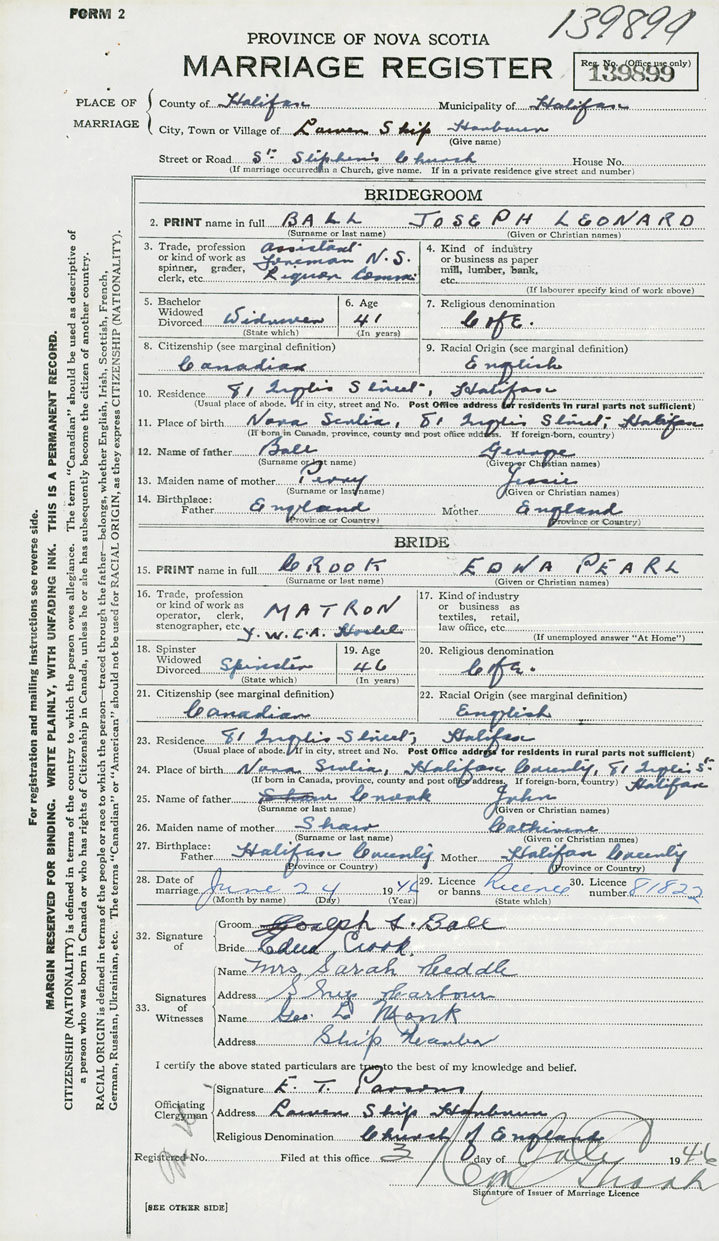 FORM 2
139899
PROVINCE OF NOVA SCOTIA
MARRIAGE REGISTER
Reg. No. (Office use only)
139899
PLACE OF MARRIAGE
County of Halifax Municipality of Halifax
City, Town or Village of Lower Ship Harbour
(Give name)
Street or Road St Stephen's Church House No.
(If marriage occurred in a Church, give name. If in a private residence give street and number)
BRIDEGROOM
2. PRINT name in full BALL JOSEPH LEONARD
(Surname or last name) (Given or Christian names)
3. Trade, profession or kind of work as spinner, grader, clerk, etc. Assistant Foreman N.S. Liquor Comm.
4. Kind of industry or business as paper mill, lumber, bank, etc.
(If labourer specify kind of work above)
5. Bachelor Widowed Divorced Widower
(State which)
6. Age 41
(In years)
7. Religious denomination C of E.
8. Citizenship (see marginal definition) Canadian
9. Racial Origin (see marginal definition) English
10. Residence 81 Inglis Street, Halifax
(Usual place of abode. If in city, street and No. Post Office address for residents in rural parts not sufficient)
11. Place of birth Nova Scotia, 81 Inglis Street, Halifax
(If born in Canada, province, county and post office address. If foreign-born, country)
12. Name of father Ball George
(Surname or last name) (Given or Christian names)
13. Maiden name of mother Perry Jessie
(Surname or last name) (Given or Christian names)
14. Birthplace: Father England Mother England
(Province or Country) (Province or Country)
BRIDE
15. PRINT name in full CROOK EDNA PEARL
(Surname or last name) (Given or Christian names)
16. Trade, profession or kind of work as operator, clerk, stenographer, etc. MATRON Y.W.C.A. Hostel
17. Kind of industry or business as textiles, retail, law office, etc.
(If unemployed answer "At Home")
18. Spinster Widowed Divorced Spinster
(State which)
19. Age 46
(In years)
20. Religious denomination C of E.
21. Citizenship (see marginal definition) Canadian
22. Racial Origin (see marginal definition) English
23. Residence 81 Inglis Street, Halifax
(Usual place of abode. If in city, street and No. Post Office address for residents in rural parts not sufficient)
24. Place of birth Nova Scotia, Halifax County, 81 Inglis St Halifax
(If born in Canada, province, county and post office address. If foreign-born, country)
25. Name of father Shaw Crook John
(Surname or last name) (Given or Christian names)
26. Maiden name of mother Shaw Catherine
(Surname or last name) (Given or Christian names)
27. Birthplace: Father Halifax County Mother Halifax County
(Province or Country) (Province or Country)
28. Date of marriage June 24 1946
(Month by name) (Day) (Year)
29. Licence or banns Licence
(State which)
30. Licence number 81822
32. Signature of
Groom Joseph L. Ball
Bride Edna Crook
33. Signatures of Witnesses
Name Mrs Sarah
Address Ship Harbour
Name Geo. D Monk
Address Ship Harbor
I certify the above stated particulars are true to the best of my knowledge and belief.
Officiating Clergyman
Signature E. T. Parsons
Address Lower Ship Harbour
Religious Denomination Church of England
Registered No. Filed at this office 3 day of July 1946
Signature of Issuer of Marriage Licence
[SEE OTHER SIDE]
For registration and mailing instructions see reverse side.
MARGIN RESERVED FOR BINDING. WRITE PLAINLY, WITH UNFADING INK. THIS IS A PERMANENT RECORD.
CITIZENSHIP (NATIONALITY) is defined in terms of the country to which the person owes allegiance. The term "Canadian" should be used as descriptive of
a person who was born in Canada or who has rights of Citizenship in Canada, unless he or she has subsequently become the citizen of another country.
RACIAL ORIGIN is defined in terms of the people or race to which the person—traced through the father—belongs, whether English, Irish, Scottish, French,
German, Russian, Ukrainian, etc. The terms "Canadian" or "American" should not be used for RACIAL ORIGIN, as they express CITIZENSHIP (NATIONALITY).